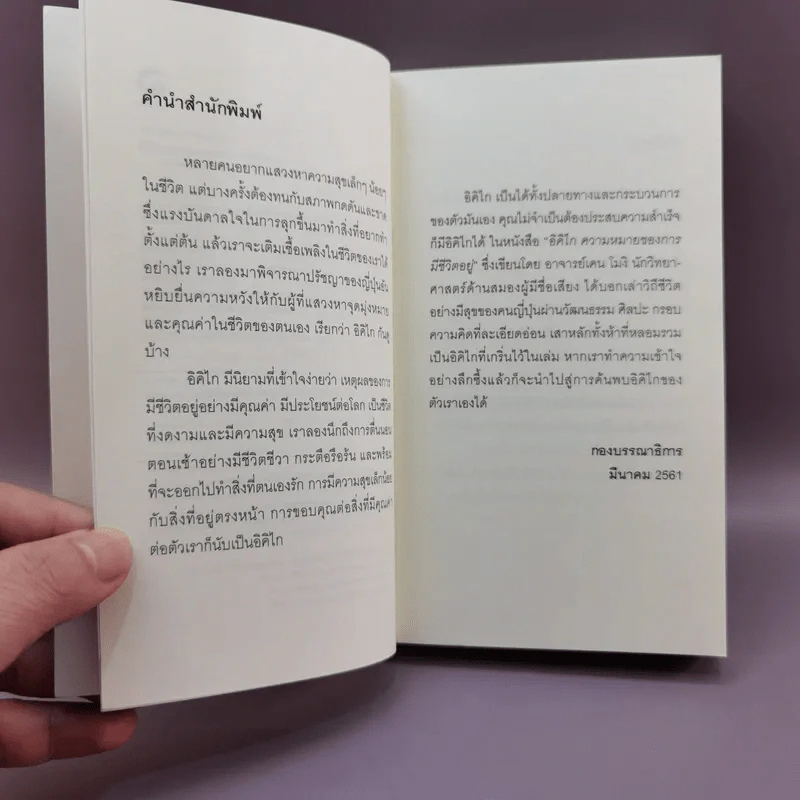 คำนำสำนักพิมพ์
หลายคนอยากแสวงหาความสุขเล็กๆ น้อยๆ
ในชีวิต แต่บางครั้งต้องทนกับสภาพกดดันและขาด
ซึ่งแรงบันดาลใจในการลุกขึ้นมาทำสิ่งที่อยากทำ
ตั้งแต่ต้น แล้วเราจะเติมเชื้อเพลิงในชีวิตของเราได้
อย่างไร เราลองมาพิจารณาปรัชญาของญี่ปุ่นอัน
หยิบยื่นความหวังให้กับผู้ที่แสวงหาจุดมุ่งหมาย
และคุณค่าในชีวิตของตนเอง เรียกว่า อิคิไก กันดู
บ้าง
อิคิไก มีนิยามที่เข้าใจง่ายว่า เหตุผลของการ
มีชีวิตอยู่อย่างมีคุณค่า มีประโยชน์ต่อโลก เป็นชีวิต
ที่งดงามและมีความสุข เราลองนึกถึงการตื่นนอน
ตอนเช้าอย่างมีชีวิตชีวา กระตือรือร้น และพร้อม
ที่จะออกไปทำสิ่งที่ตนเองรัก การมีความสุขเล็กน้อย
กับสิ่งที่อยู่ตรงหน้า การขอบคุณต่อสิ่งที่มีคุณค่า
ต่อตัวเราก็นับเป็นอิคิไก
อิคิไก เป็นได้ทั้งปลายทางและกระบวนการ
ของตัวมันเอง คุณไม่จำเป็นต้องประสบความสำเร็จ
ก็มีอิคิไกได้ ในหนังสือ "อิคิไก ความหมายของการ
มีชีวิตอยู่" ซึ่งเขียนโดย อาจารย์เคน โมงิ นักวิทยา-
ศาสตร์ด้านสมองผู้มีชื่อเสียง ได้บอกเล่าวิถีชีวิต
อย่างมีสุขของคนญี่ปุ่นผ่านวัฒนธรรม ศิลปะ กรอบ
ความคิดที่ละเอียดอ่อน เสาหลักทั้งห้าที่หลอมรวม
เป็นอิคิไกที่เกริ่นไว้ในเล่ม หากเราทำความเข้าใจ
อย่างลึกซึ้งแล้วก็จะนำไปสู่การค้นพบอิคิไกของ
ตัวเราเองได้
กองบรรณาธิการ
มีนาคม 2561